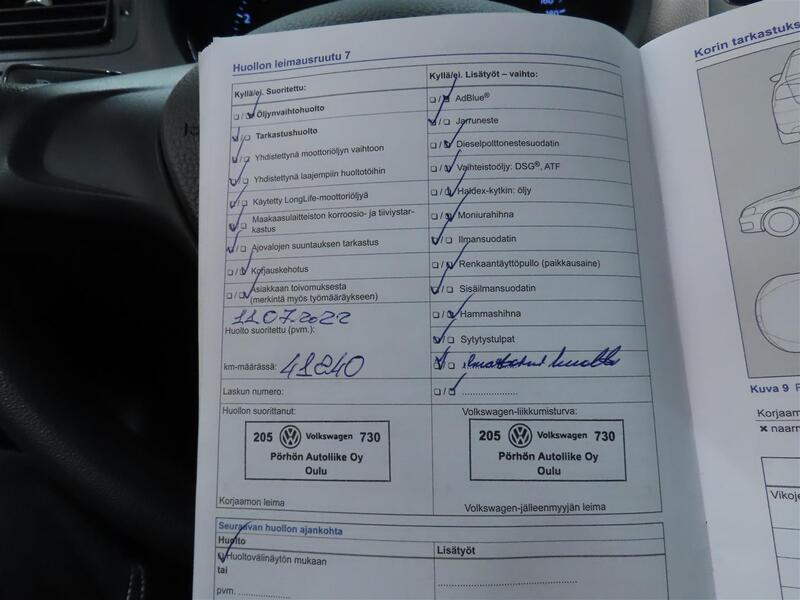 Huollon leimausruutu 7
Kyllä/ei. Suoritettu:
☐/☑ Öljynvaihtohuolto
☑/☐ Tarkastushuolto
☑/☐ Yhdistettynä moottoriöljyn vaihtoon
☑/☐ Yhdistettynä laajempiin huoltotöihin
☑/☐ Käytetty LongLife-moottoriöljyä
☑/☐ Maakaasulaitteiston korroosio- ja tiiviystar-
kastus
☑/☐ Ajovalojen suuntauksen tarkastus
☐/☑ Korjauskehotus
☐/☑ Asiakkaan toivomuksesta
(merkintä myös työmääräykseen)
11.07.2022
Huolto suoritettu (pvm.):
km-määrässä: 41240
Laskun numero:
Kyllä/ei. Lisätyöt – vaihto:
☐/☑ AdBlue®
☑/☐ Jarruneste
☐/☑ Dieselpolttonestesuodatin
☐/☑ Vaihteistoöljy: DSG®, ATF
☐/☑ Haldex-kytkin: öljy
☐/☑ Moniurahihna
☑/☐ Ilmansuodatin
☐/☑ Renkaantäyttöpullo (paikkausaine)
☑/☐ Sisäilmansuodatin
☐/☑ Hammashihna
☑/☐ Sytytystulpat
☑/☐ huolto
☐/☑ ....................
Huollon suorittanut:
205 Volkswagen 730
Pörhön Autoliike Oy
Oulu
Korjaamon leima
Volkswagen-liikkumisturva:
205 Volkswagen 730
Pörhön Autoliike Oy
Oulu
Volkswagen-jälleenmyyjän leima
Seuraavan huollon ajankohta
Huolto
☑ Huoltovälinäytön mukaan
tai
pvm. ....................
Lisätyöt
Korin tarkastuks
Kuva 9
Korjaam
× naarm
Vikoje